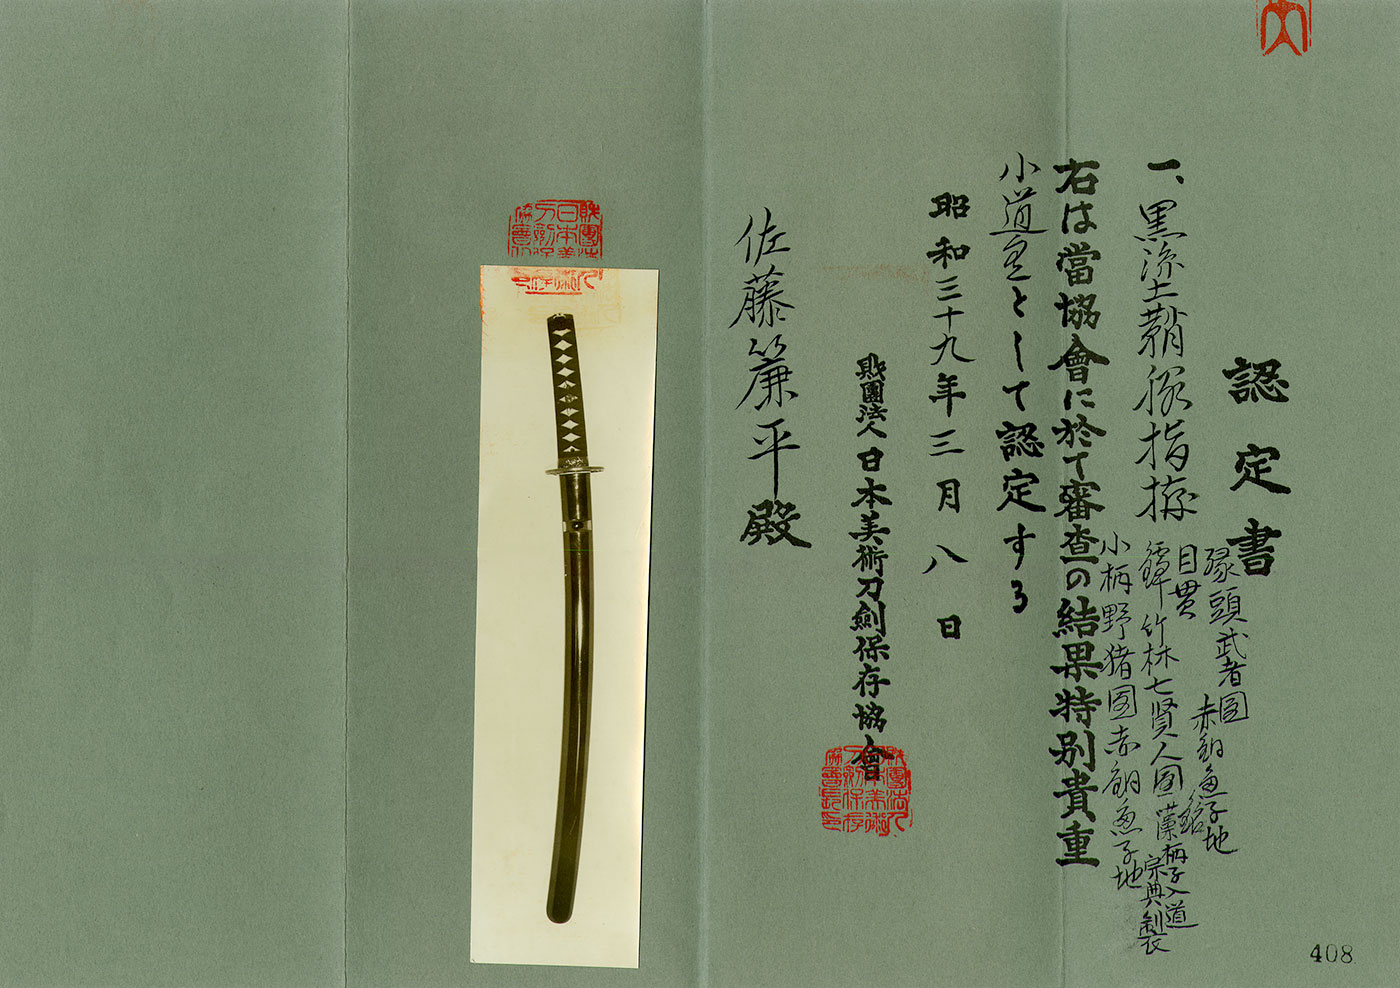 認定書
一、黒塗鞘脇指拵
縁頭武者圖
目貫
赤銅魚子地
鐔竹林七賢人圖
銘
藻柄子入道
宗典製
小柄野猪圖赤銅魚子地
右は當協會に於て審査の結果特別貴重
小道具として認定する
昭和三十九年三月八日
財團法人日本美術刀劍保存協會
佐藤簾平殿
408